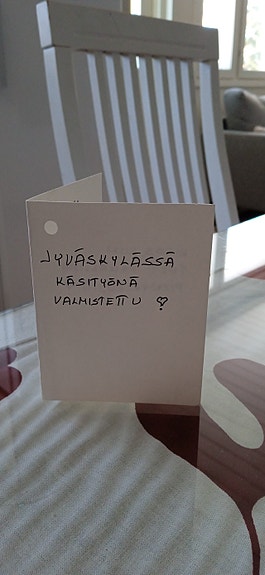 JYVÄSKYLÄSSÄ
KÄSITYÖNÄ
VALMISTETTU ♡